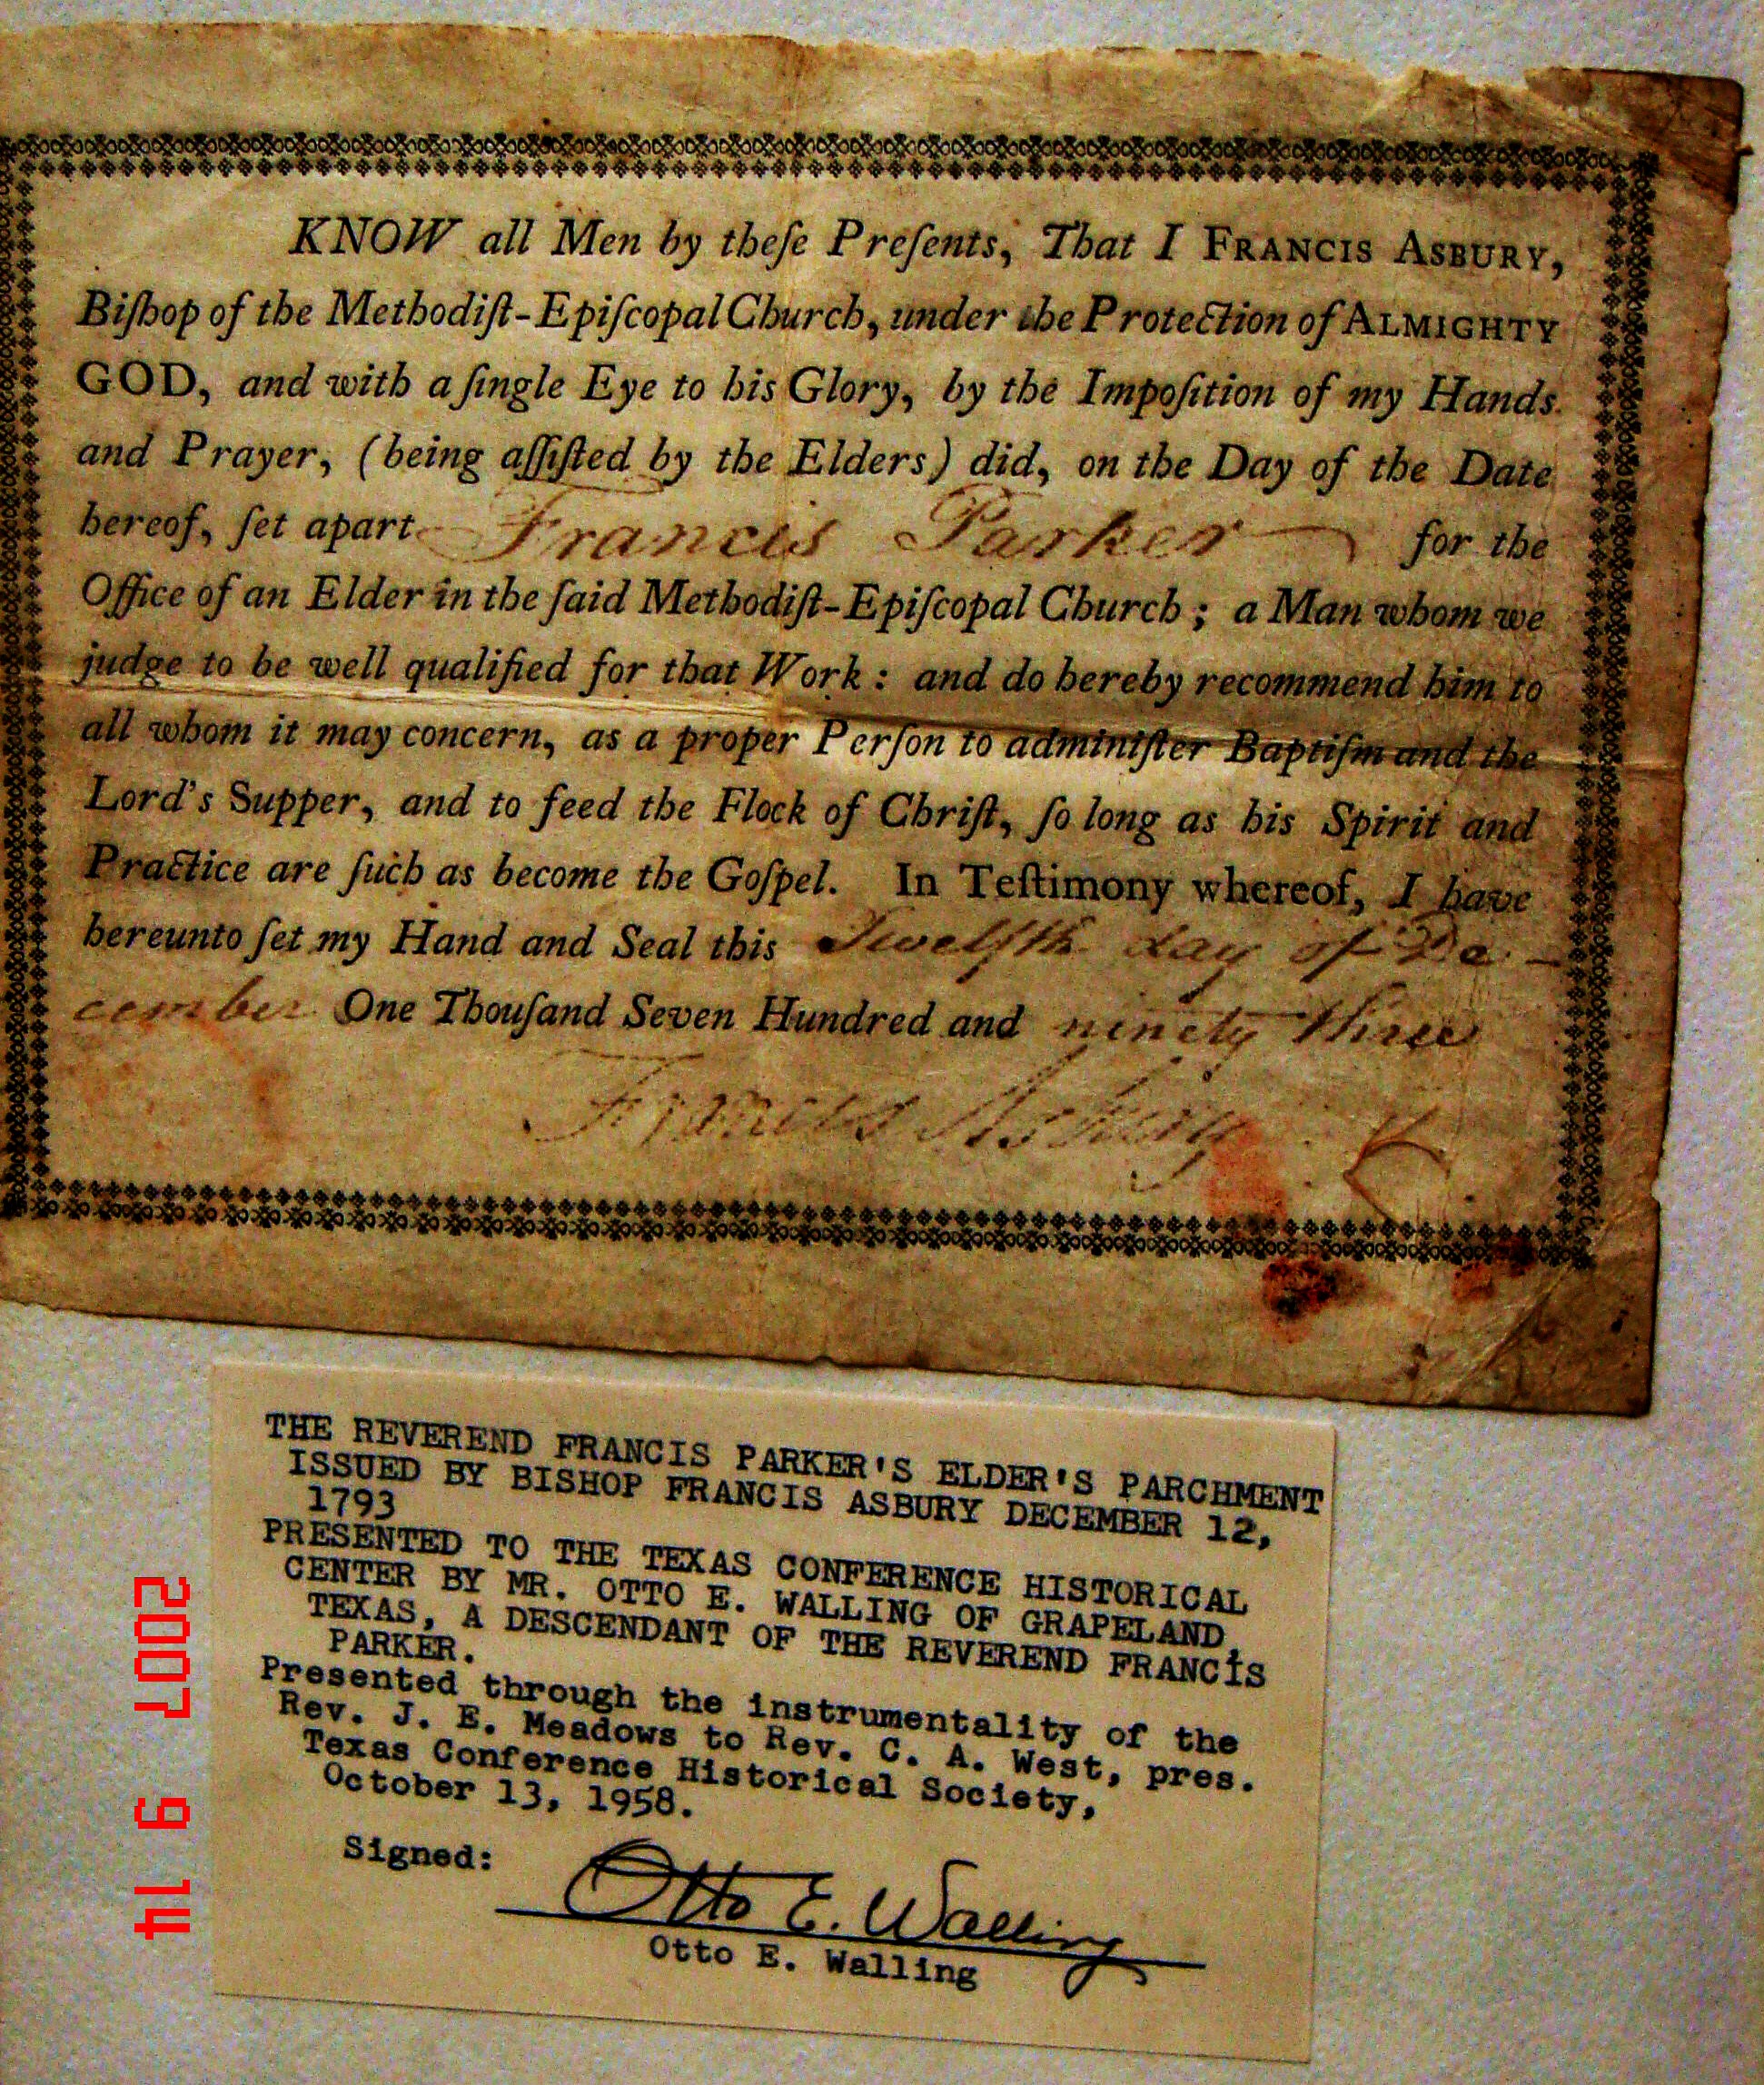 KNOW all Men by theſe Preſents, That I FRANCIS ASBURY,
Biſhop of the Methodiſt-Epiſcopal Church, under the Protection of ALMIGHTY
GOD, and with a ſingle Eye to his Glory, by the Impoſition of my Hands
and Prayer, (being aſſiſted by the Elders) did, on the Day of the Date
hereof, ſet apart Francis Parker for the
Office of an Elder in the ſaid Methodiſt-Epiſcopal Church; a Man whom we
judge to be well qualified for that Work: and do hereby recommend him to
all whom it may concern, as a proper Perſon to adminiſter Baptiſm and the
Lord's Supper, and to feed the Flock of Chriſt, ſo long as his Spirit and
Practice are ſuch as become the Goſpel. In Teſtimony whereof, I have
hereunto ſet my Hand and Seal this Twelfth day of De-
cember One Thouſand Seven Hundred and ninety three
Francis Asbury
THE REVEREND FRANCIS PARKER'S ELDER'S PARCHMENT
ISSUED BY BISHOP FRANCIS ASBURY DECEMBER 12,
1793
PRESENTED TO THE TEXAS CONFERENCE HISTORICAL
CENTER BY MR. OTTO E. WALLING OF GRAPELAND,
TEXAS, A DESCENDANT OF THE REVEREND FRANCIS
PARKER.
Presented through the instrumentality of the
Rev. J. E. Meadows to Rev. C. A. West, pres.
Texas Conference Historical Society,
October 13, 1958.
Signed: Otto E. Walling
Otto E. Walling
2007 9 14